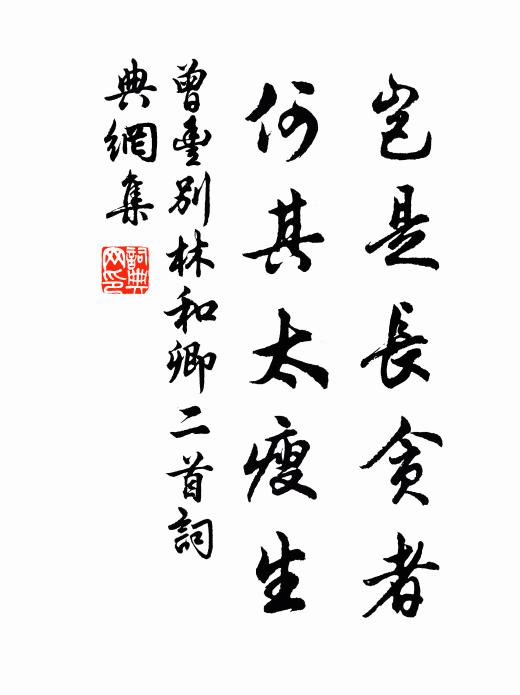 豈是長貪者
何其太瘦生
曾豊別林和卿二首詞
典網集
詞典
网印